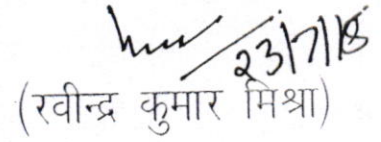 23/7/18
(रवीन्द्र कुमार मिश्रा)